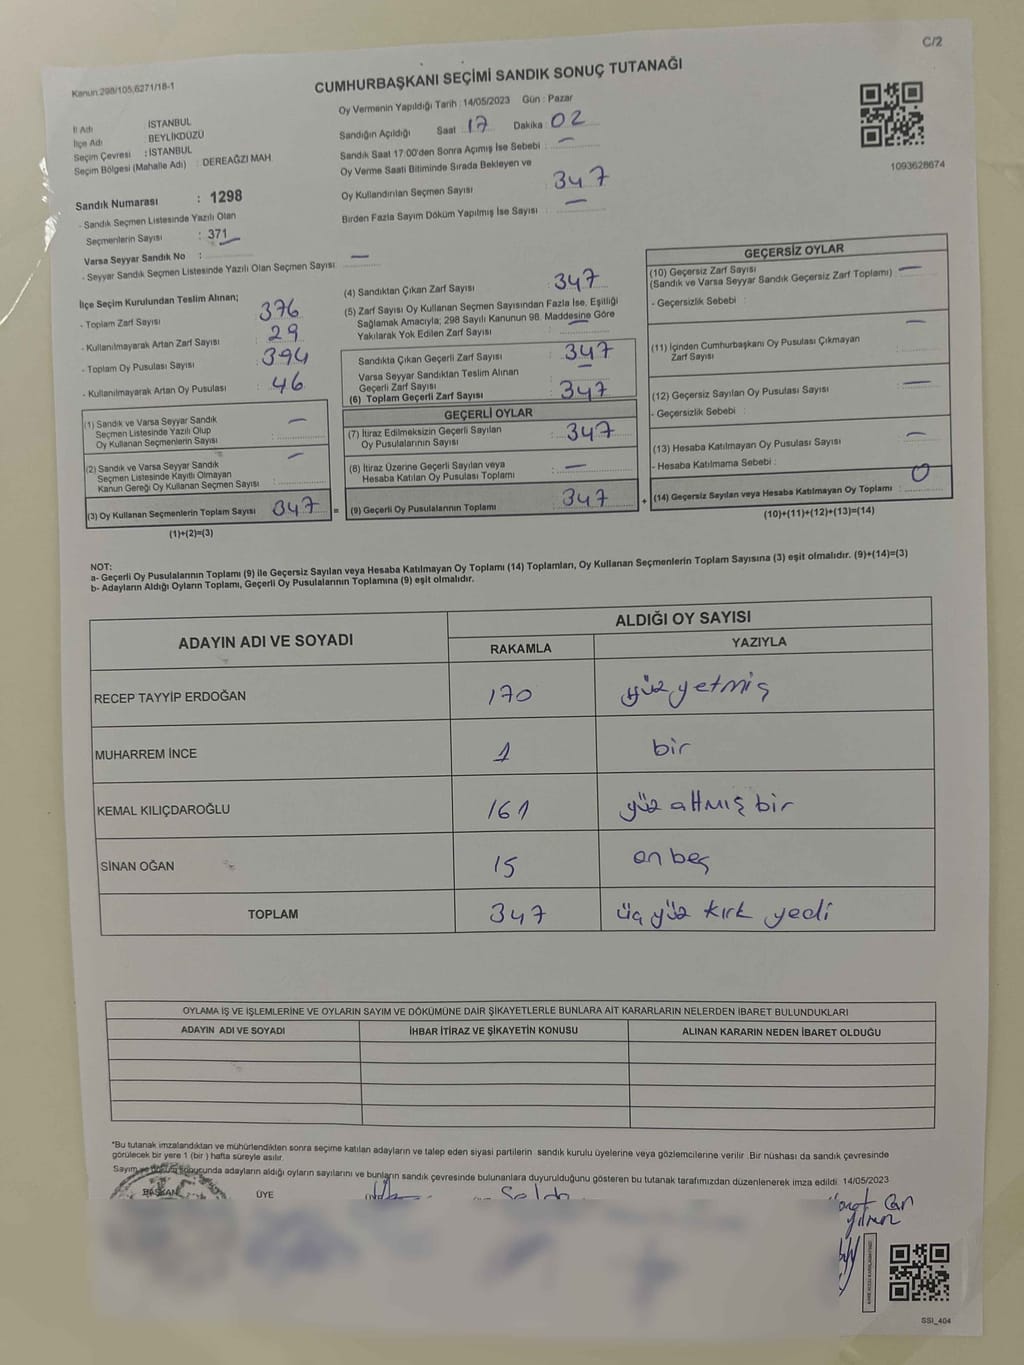 C/2
Kanun:298/105,6271/18-1
CUMHURBAŞKANI SEÇİMİ SANDIK SONUÇ TUTANAĞI
Oy Vermenin Yapıldığı Tarih : 14/05/2023 Gün : Pazar
İl Adı : İSTANBUL
İlçe Adı : BEYLİKDÜZÜ
Seçim Çevresi : İSTANBUL
Seçim Bölgesi (Mahalle Adı) : DEREAĞZI MAH.
Sandığın Açıldığı Saat 17 Dakika 02
Sandık Saat 17:00'den Sonra Açımış İse Sebebi : —
Oy Verme Saati Bitiminde Sırada Bekleyen ve
Oy Kullandırılan Seçmen Sayısı : 347
Birden Fazla Sayım Döküm Yapılmış İse Sayısı : —
1093628674
Sandık Numarası : 1298
- Sandık Seçmen Listesinde Yazılı Olan
Seçmenlerin Sayısı : 371
Varsa Seyyar Sandık No :
- Seyyar Sandık Seçmen Listesinde Yazılı Olan Seçmen Sayısı : —
İlçe Seçim Kurulundan Teslim Alınan;
- Toplam Zarf Sayısı : 376
- Kullanılmayarak Artan Zarf Sayısı : 29
- Toplam Oy Pusulası Sayısı : 394
- Kullanılmayarak Artan Oy Pusulası : 46
(1) Sandık ve Varsa Seyyar Sandık
Seçmen Listesinde Yazılı Olup
Oy Kullanan Seçmenlerin Sayısı : —
(2) Sandık ve Varsa Seyyar Sandık
Seçmen Listesinde Kayıtlı Olmayan
Kanun Gereği Oy Kullanan Seçmen Sayısı : —
(3) Oy Kullanan Seçmenlerin Toplam Sayısı 347
(1)+(2)=(3)
(4) Sandıktan Çıkan Zarf Sayısı : 347
(5) Zarf Sayısı Oy Kullanan Seçmen Sayısından Fazla İse, Eşitliği
Sağlamak Amacıyla; 298 Sayılı Kanunun 98. Maddesine Göre
Yakılarak Yok Edilen Zarf Sayısı : —
Sandıkta Çıkan Geçerli Zarf Sayısı : 347
Varsa Seyyar Sandıktan Teslim Alınan
Geçerli Zarf Sayısı : —
(6) Toplam Geçerli Zarf Sayısı : 347
GEÇERLİ OYLAR
(7) İtiraz Edilmeksizin Geçerli Sayılan
Oy Pusulalarının Sayısı : 347
(8) İtiraz Üzerine Geçerli Sayılan veya
Hesaba Katılan Oy Pusulası Toplamı : —
= (9) Geçerli Oy Pusulalarının Toplamı : 347
GEÇERSİZ OYLAR
(10) Geçersiz Zarf Sayısı
(Sandık ve Varsa Seyyar Sandık Geçersiz Zarf Toplamı) : —
- Geçersizlik Sebebi :
(11) İçinden Cumhurbaşkanı Oy Pusulası Çıkmayan
Zarf Sayısı : —
(12) Geçersiz Sayılan Oy Pusulası Sayısı : —
- Geçersizlik Sebebi :
(13) Hesaba Katılmayan Oy Pusulası Sayısı : —
- Hesaba Katılmama Sebebi :
+ (14) Geçersiz Sayılan veya Hesaba Katılmayan Oy Toplamı : 0
(10)+(11)+(12)+(13)=(14)
NOT:
a- Geçerli Oy Pusulalarının Toplamı (9) ile Geçersiz Sayılan veya Hesaba Katılmayan Oy Toplamı (14) Toplamları, Oy Kullanan Seçmenlerin Toplam Sayısına (3) eşit olmalıdır. (9)+(14)=(3)
b- Adayların Aldığı Oyların Toplamı, Geçerli Oy Pusulalarının Toplamına (9) eşit olmalıdır.
ADAYIN ADI VE SOYADI ALDIĞI OY SAYISI
RAKAMLA YAZIYLA
RECEP TAYYİP ERDOĞAN 170 yüz yetmiş
MUHARREM İNCE 1 bir
KEMAL KILIÇDAROĞLU 161 yüz altmış bir
SİNAN OĞAN 15 on beş
TOPLAM 347 üç yüz kırk yedi
OYLAMA İŞ VE İŞLEMLERİNE VE OYLARIN SAYIM VE DÖKÜMÜNE DAİR ŞİKAYETLERLE BUNLARA AİT KARARLARIN NELERDEN İBARET BULUNDUKLARI
ADAYIN ADI VE SOYADI İHBAR İTİRAZ VE ŞİKAYETİN KONUSU ALINAN KARARIN NEDEN İBARET OLDUĞU
*Bu tutanak imzalandıktan ve mühürlendikten sonra seçime katılan adayların ve talep eden siyasi partilerin sandık kurulu üyelerine veya gözlemcilerine verilir .Bir nüshası da sandık çevresinde
görülecek bir yere 1 (bir ) hafta süreyle asılır.
Sayım ve döküm sonucunda adayların aldığı oyların sayılarını ve bunların sandık çevresinde bulunanlara duyurulduğunu gösteren bu tutanak tarafımızdan düzenlenerek imza edildi. 14/05/2023
BAŞKAN ÜYE
SSI_404